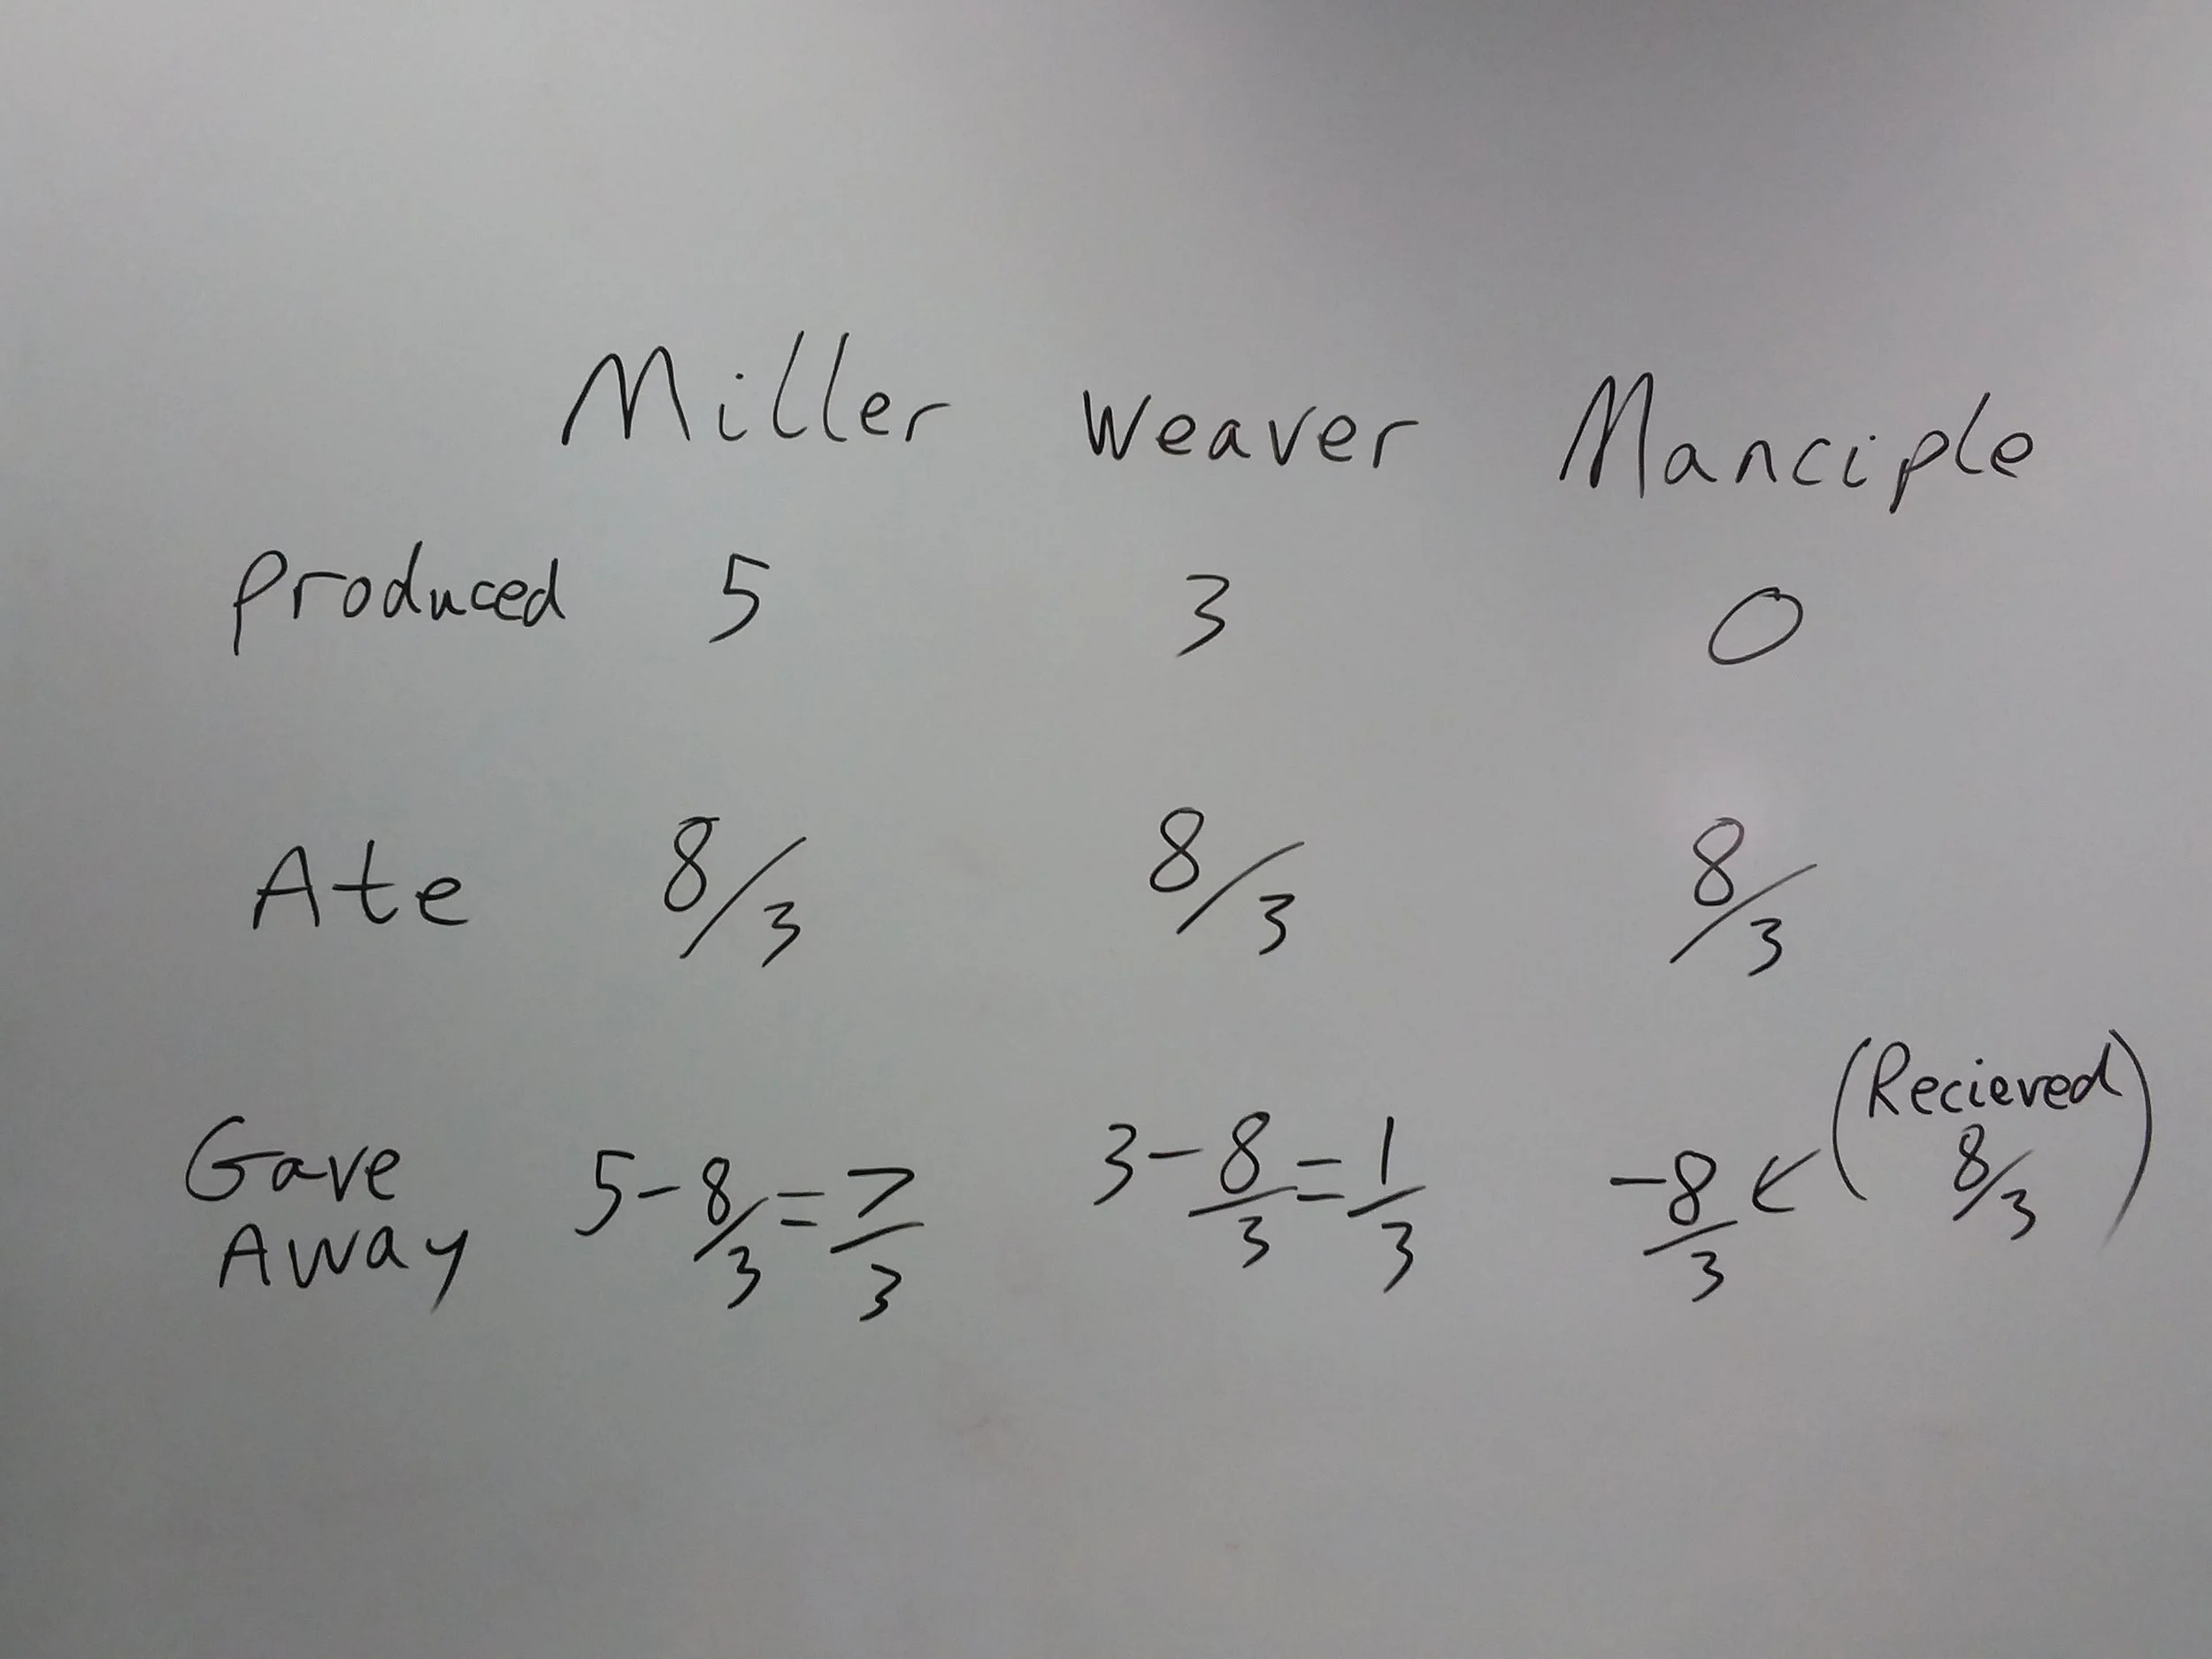 Miller Weaver Manciple
Produced 5 3 0
Ate 8/3 8/3 8/3
Gave Away 5-8/3=7/3 3-8/3=1/3 -8/3 (Recieved 8/3)